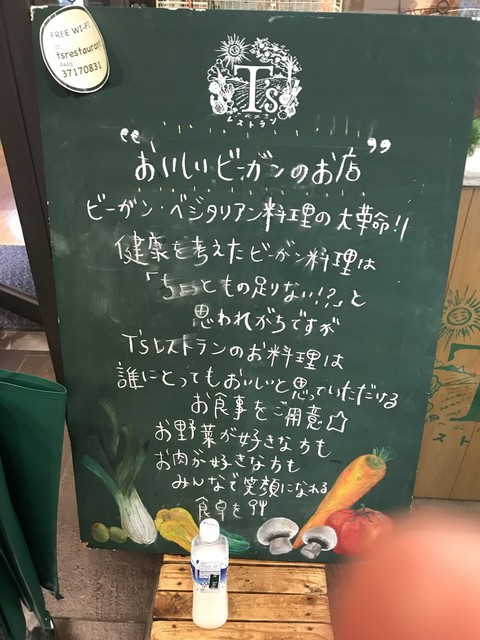 FREE WI-FI
ID
tsrestaurant
PASS
37170831
T's
レストラン
“おいしいビーガンのお店”
ビーガン・ベジタリアン料理の大革命!!
健康を考えたビーガン料理は
「ちょっともの足りない!?」と
思われがちですが
T'sレストランのお料理は
誰にとってもおいしいと思っていただける
お食事をご用意☆
お野菜が好きな方も
お肉が好きな方も
みんなで笑顔になれる
食卓を